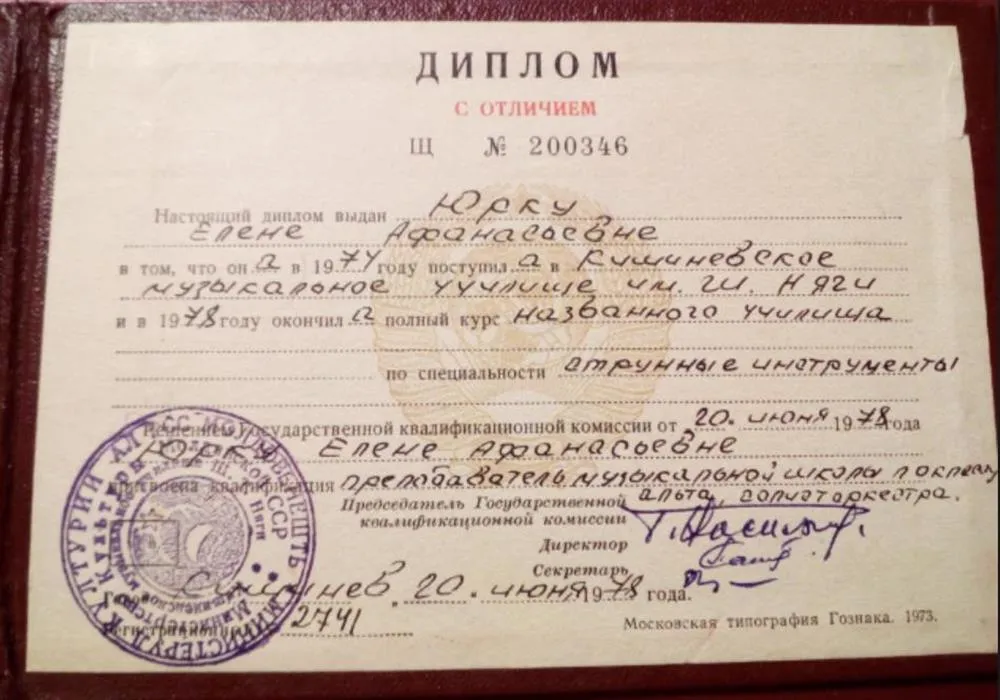 ДИПЛОМ
С ОТЛИЧИЕМ
Щ № 200346
Настоящий диплом выдан Юрку
Елене Афанасьевне
в том, что он а в 1974 году поступил а в Кишиневское
музыкальное училище им. Ш. Няги
и в 1978 году окончил а полный курс названного училища
по специальности струнные инструменты
Решением Государственной квалификационной комиссии от 20. июня 1978 года
Юрку Елене Афанасьевне
присвоена квалификация преподаватель музыкальной школы по классу
альта, солист оркестра.
Председатель Государственной
квалификационной комиссии
Директор
Секретарь
Город Кишинев 20. июня 1978 года.
Регистрационный 2741
Московская типография Гознака. 1973.